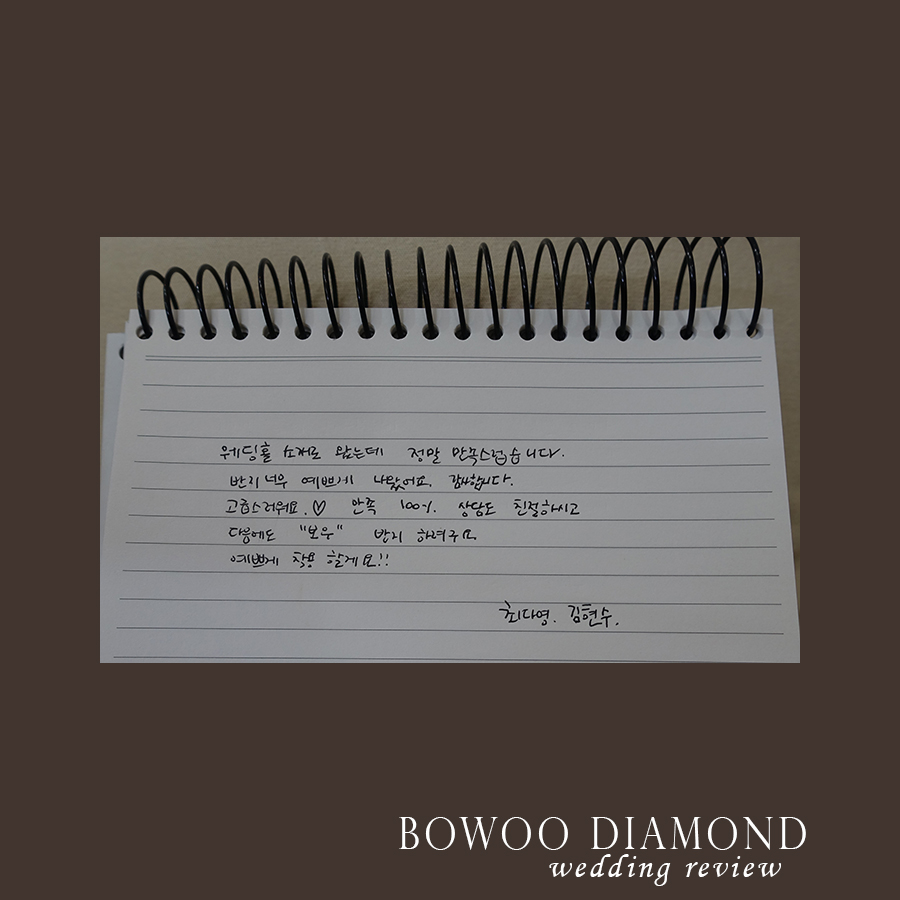 웨딩홀 소개로 왔는데 정말 만족스럽습니다.
반지 너무 예쁘게 나왔어요. 감사합니다.
고급스러워요.♡ 만족 100%. 상담도 친절하시고
다음에도 "보우" 반지 하려구요
예쁘게 착용 할게요!!
최다영. 김현수.
BOWOO DIAMOND
wedding review